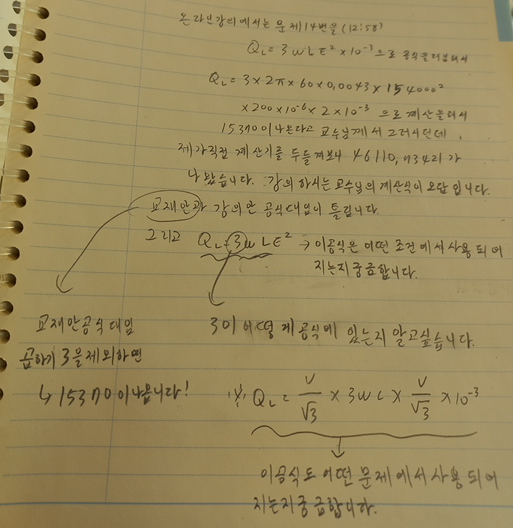 온라인강의에서는 문제 14번을 (12:58)
QL = 3WLE² × 10⁻³ 으로 공식
QL = 3 × 2π × 60 × 0,0043 × 154000²
× 200 × 10⁻⁶ × 2 × 10⁻³ 으로 계산
15370이 나온다고 교수님께서 그러시던데,
제가직접 계산기를 두들겨보니 46110,93421가
나왔습니다. 강의 하시는 교수님의 계산식이 오답 입니다.
교재안과 강의안 공식대입이 틀립니다.
그리고 QL = 3WLE² → 이공식은 어떤 조건에서 사용 되어
지는지 궁금합니다.
교재안공식대입
곱하기 3을 제외하면
↳ 15370이 나옵니다!
3이 어떻게 공식에 있는지 알고싶습니다.
※ QL = V/√3 × 3WC × V/√3 × 10⁻³
이공식도 어떤 문제에서 사용 되어
지는지궁금합니다.